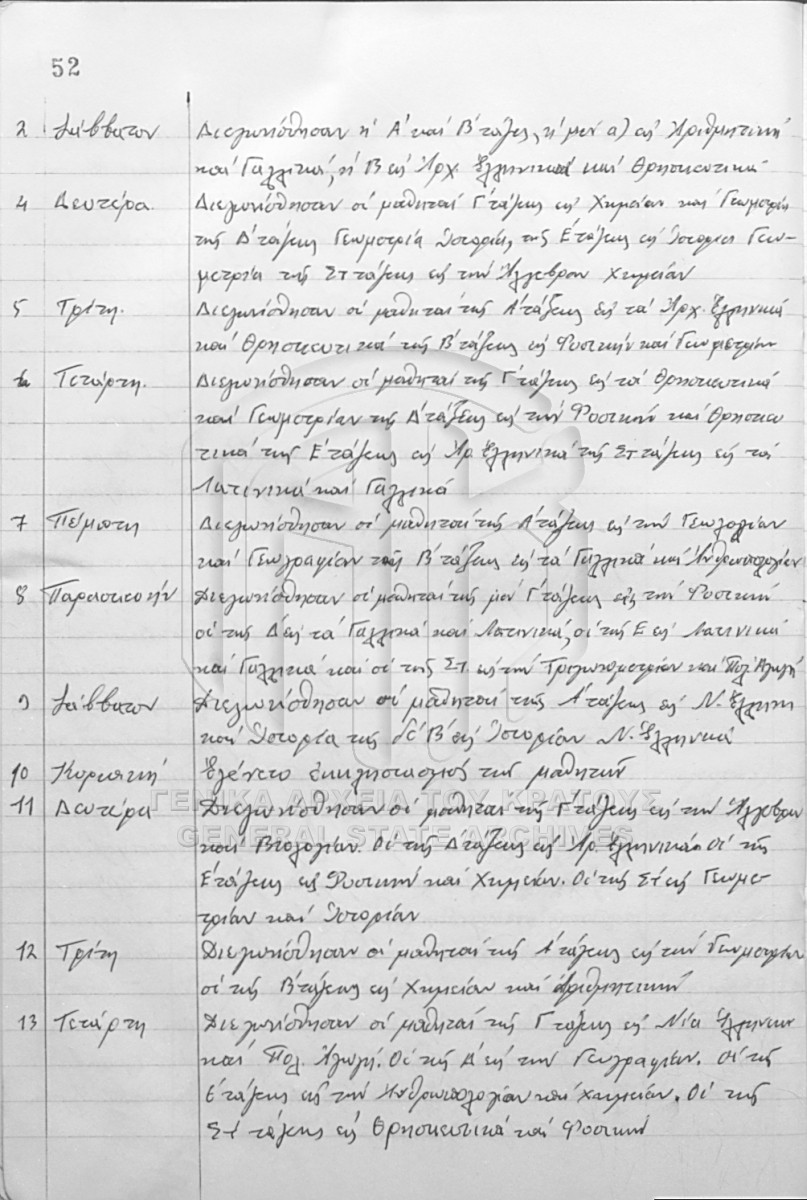 52
2 Σάββατον Διεγωνίσθησαν ἡ Α' καί Β' τάξις, ἡ μέν α) εἰς Ἀριθμητική
καί Γαλλικά, ἡ Β εἰς Ἀρχ. Ἑλληνικά καί Θρησκευτικά
4 Δευτέρα. Διεγωνίσθησαν οἱ μαθηταί Γ' τάξεως εἰς Χημείαν καί Γεωμετρία
τῆς Δ' τάξεως Γεωμετρία Ἱστορία, τῆς Ε' τάξεως εἰς Ἱστορία Γεω-
μετρία τῆς ΣΤ τάξεως εἰς τήν Ἄλγεβραν Χημείαν
5 Τρίτη. Διεγωνίσθησαν οἱ μαθηταί τῆς Α' τάξεως εἰς τά Ἀρχ. Ἑλληνικά
καί Θρησκευτικά τῆς Β' τάξεως εἰς Φυσικήν καί Γεωμετρίαν
6 Τετάρτη. Διεγωνίσθησαν οἱ μαθηταί τῆς Γ' τάξεως εἰς τά Θρησκευτικά
καί Γεωμετρίαν τῆς Δ' τάξεως εἰς τήν Φυσικήν καί Θρησκευ
τικά τῆς Ε' τάξεως εἰς Ἀρ. Ἑλληνικά τῆς ΣΤ τάξεως εἰς τά
Λατινικά καί Γαλλικά
7 Πέμπτη Διεγωνίσθησαν οἱ μαθηταί τῆς Α' τάξεως εἰς τήν Γεωλογίαν
καί Γεωγραφίαν τῆς Β' τάξεως εἰς τά Γαλλικά καί Ἀνθρωπολογίαν
8 Παρασκευήν Διεγωνίσθησαν οἱ μαθηταί τῆς μέν Γ' τάξεως εἰς τήν Φυσική
οἱ τῆς Δ' εἰς τά Γαλλικά καί Λατινικά, οἱ τῆς Ε εἰς Λατινικά
καί Γαλλικά καί οἱ τῆς ΣΤ. εἰς τήν Τριγωνομετρίαν καί Πολ. Ἀγωγή
9 Σάββατον Διεγωνίσθησαν οἱ μαθηταί τῆς Α' τάξεως εἰς Ν. Ἑλλην
καί Ἱστορία τῆς δέ Β' εἰς Ἱστορίαν Ν. Ἑλληνικά
10 Κυριακή Ἐγένετο ἐκκλησιασμός τῶν μαθητῶν
ΓΕΝΙΚΑ ΑΡΧΕΙΑ ΤΟΥ ΚΡΑΤΟΥΣ
11 Δευτέρα Διεγωνίσθησαν οἱ μαθηταί τῆς Γ' τάξεως εἰς τήν Ἄλγεβραν
GENERAL STATE ARCHIVES
καί Βιολογίαν. Οἱ τῆς Δ τάξεως εἰς Ἀρ. Ἑλληνικά. Οἱ τῆς
Ε' τάξεως εἰς Φυσικήν καί Χημείαν. Οἱ τῆς ΣΤ εἰς Γεωμε-
τρίαν καί Ἱστορίαν
12 Τρίτη Διεγωνίσθησαν οἱ μαθηταί τῆς Α' τάξεως εἰς τήν Γεωμετρίαν
οἱ τῆς Β' τάξεως εἰς Χημείαν καί Ἀριθμητικήν
13 Τετάρτη Διεγωνίσθησαν οἱ μαθηταί τῆς Γ τάξεως εἰς Νέα Ἑλληνικά
καί Πολ. Ἀγωγή. Οἱ τῆς Δ' εἰς τήν Γεωγραφίαν. Οἱ τῆς
Ε' τάξεως εἰς τήν Ἀνθρωπολογίαν καί Χημείαν. Οἱ τῆς
ΣΤ τάξεως εἰς Θρησκευτικά καί Φυσικήν